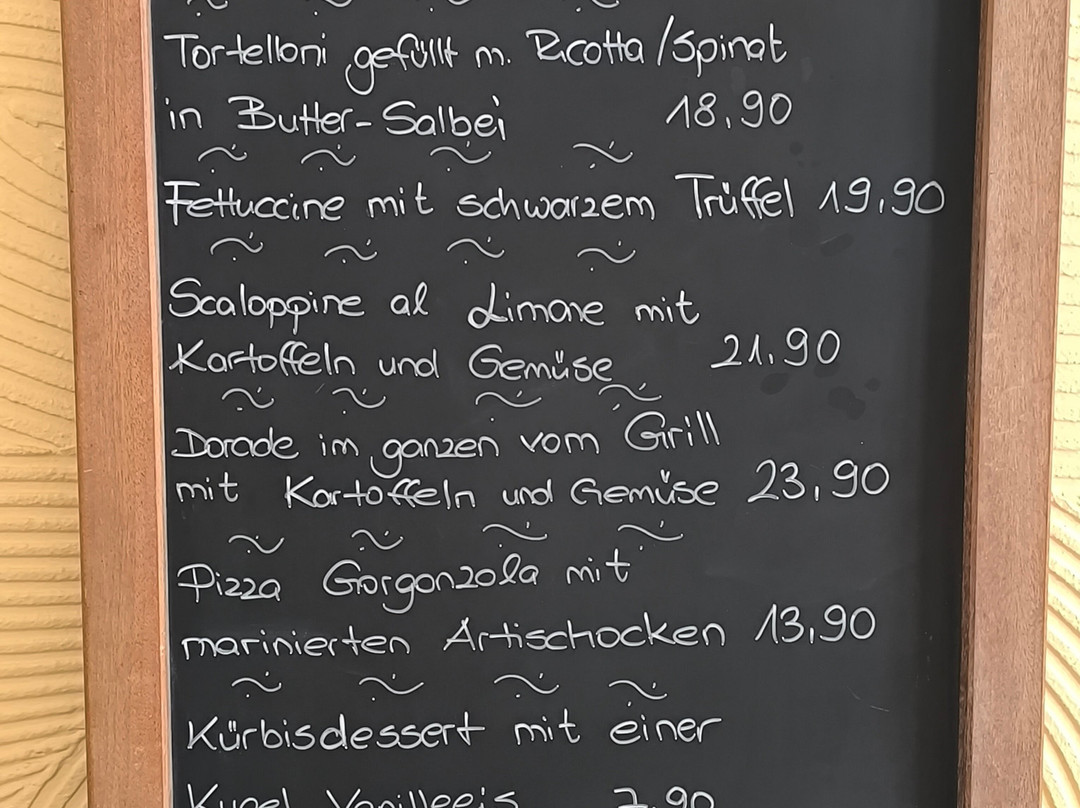 Tortelloni gefüllt m. Ricotta/Spinat
in Butter-Salbei 18,90
Fettuccine mit schwarzem Trüffel 19,90
Scaloppine al Limone mit
Kartoffeln und Gemüse 21,90
Dorade im ganzen vom Grill
mit Kartoffeln und Gemüse 23,90
Pizza Gorgonzola mit
marinierten Artischocken 13,90
Kürbisdessert mit einer
Kugel Vanilleeis 7,90